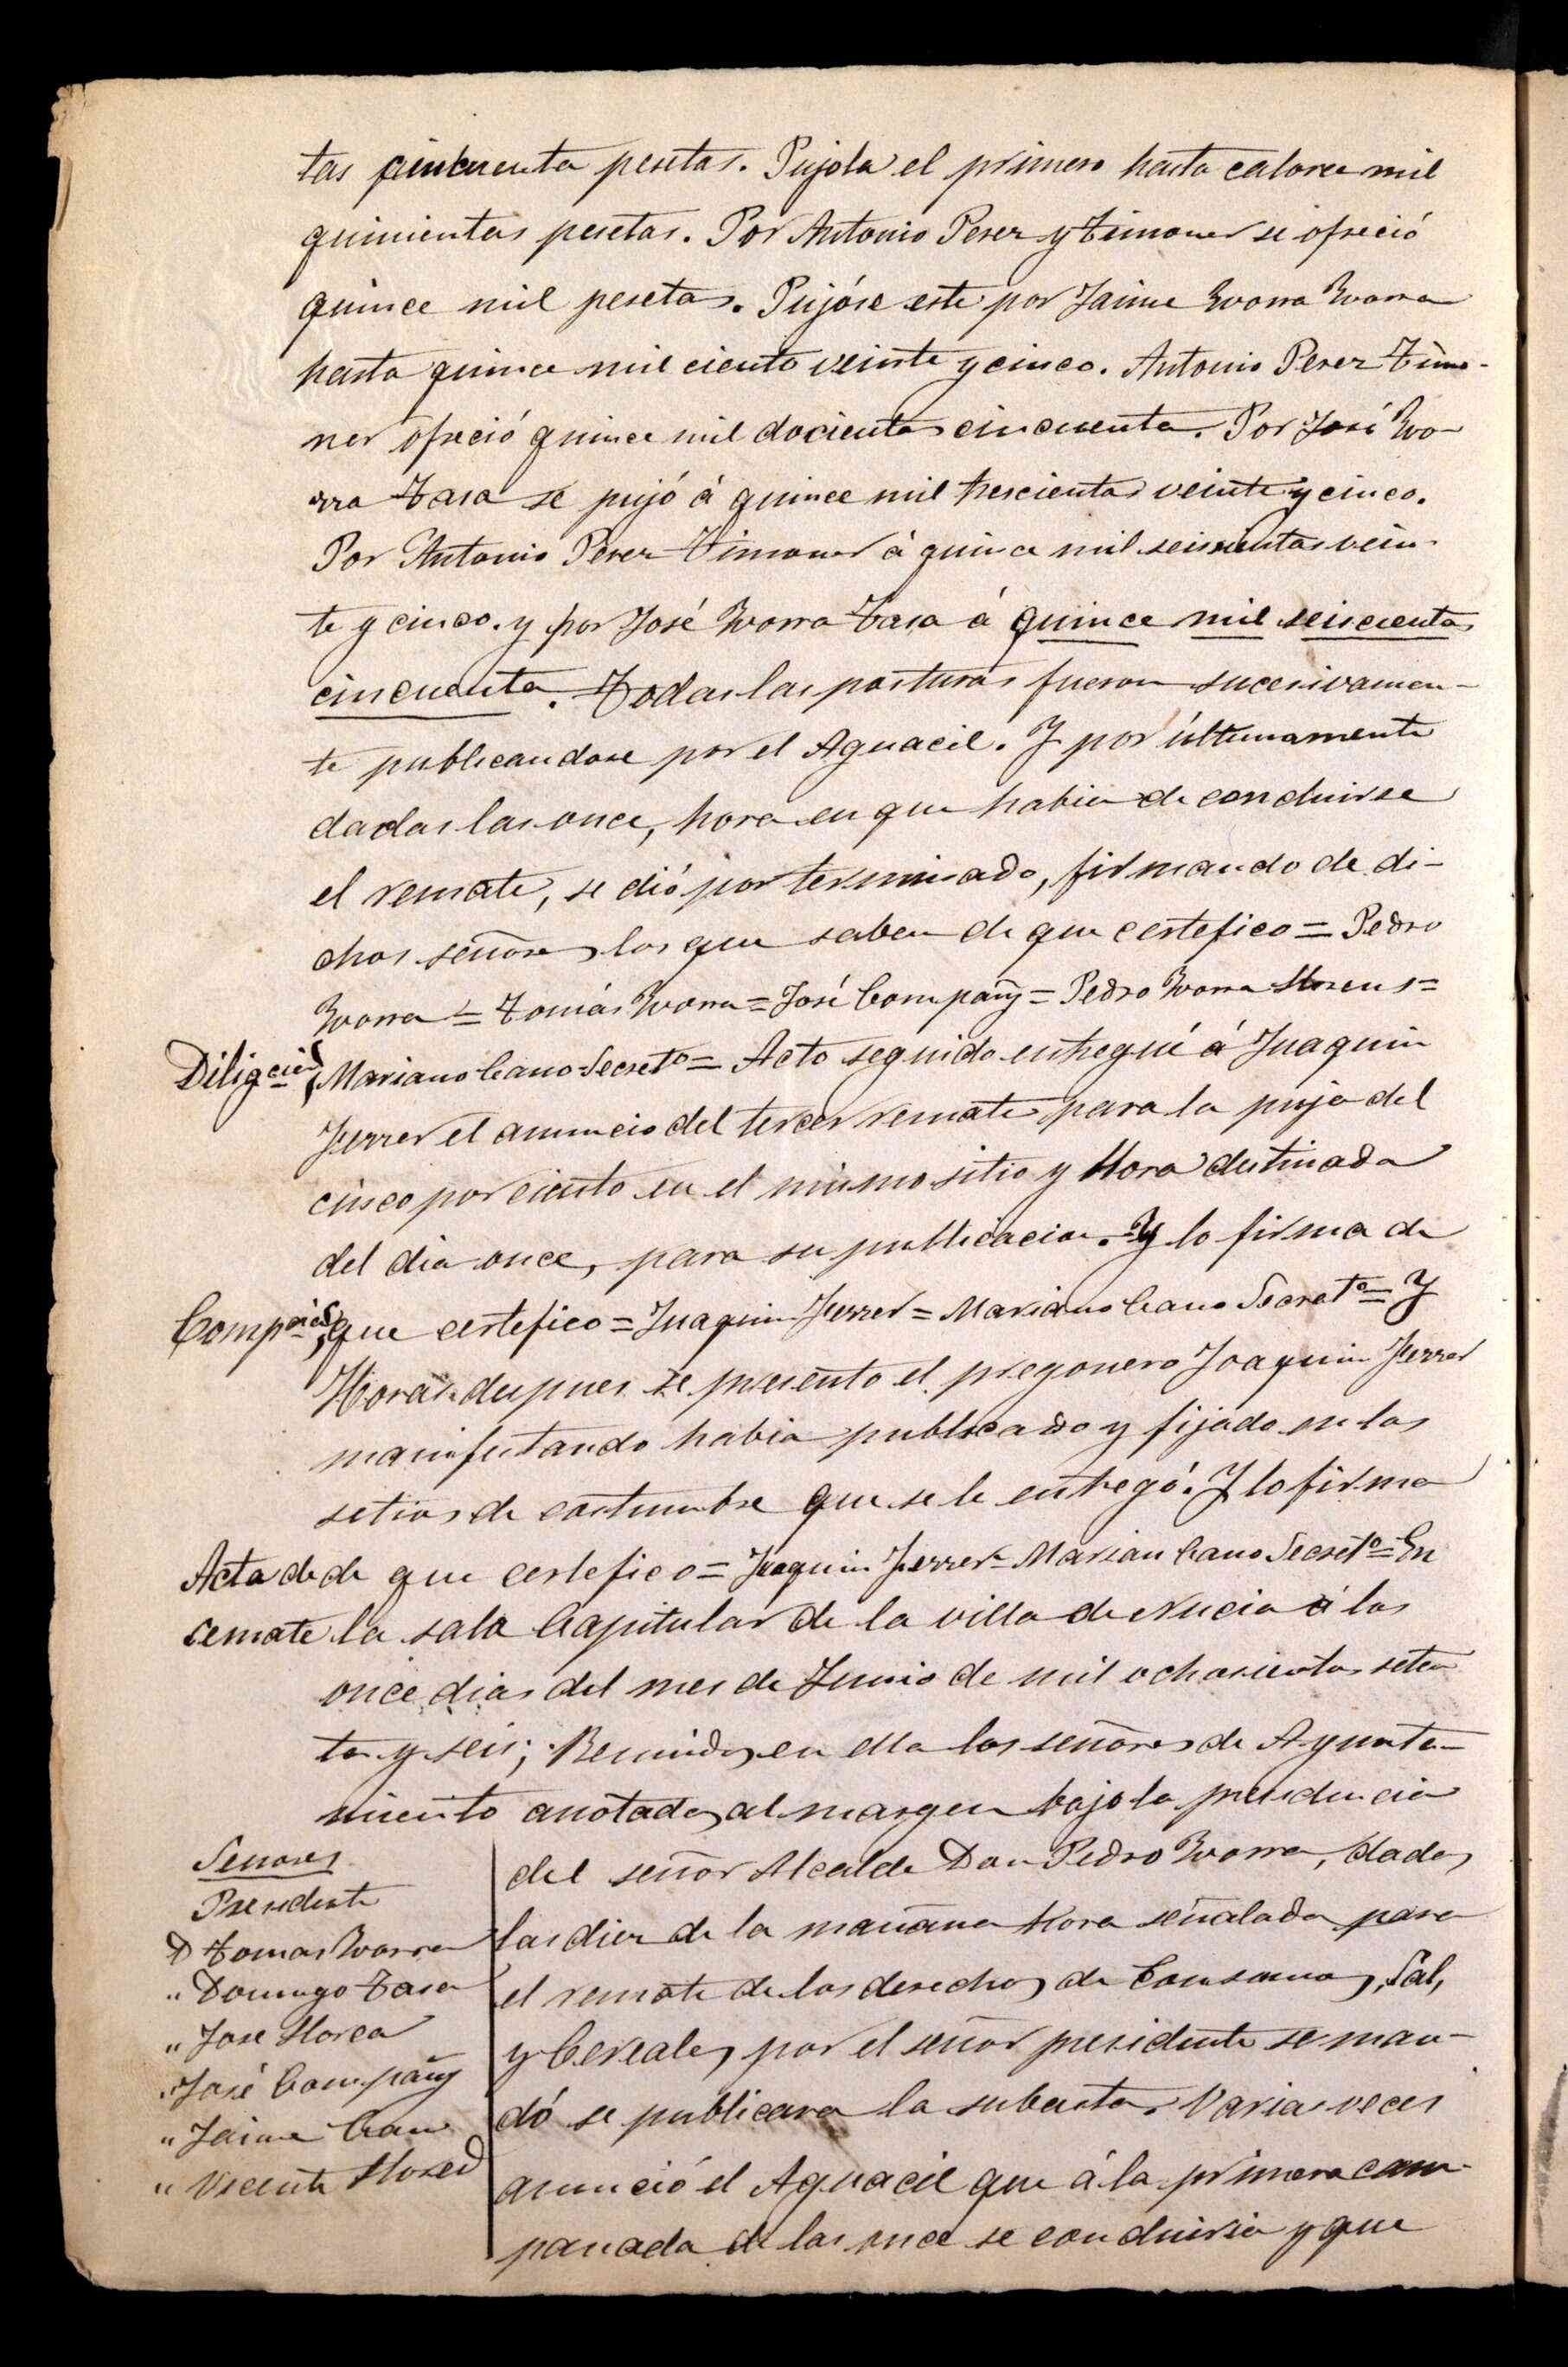 tas cincuenta pesetas. Pujola el primero hasta catorce mil
quinientas pesetas. Por Antonio Perez y Timoner se ofreció
quince mil pesetas. Pujóse este por Jaime Yvorra Yvorra
hasta quince mil ciento veinte y cinco. Antonio Perez Timo-
ner ofreció quince mil docientas cincuenta. Por José Yvo
rra Tasa se pujó á quince mil trescientas veinte y cinco.
Por Antonio Perez Timoner á quince mil seiscientas vein-
te y cinco. y por José Yvorra Tasa á quince mil seiscientas
cincuenta. Todas las posturas fueron sucesivamen-
te publicandose por el Aguacil. Y por últimamente
dadas las once, hora en que habia de concluirse
el remate, se dió por terminado, firmando de di-
chos señores los que saben de que certefico = Pedro
Yvorra = Tomás Yvorra = José Compañy = Pedro Yvorra Llorens =
Diligcia Mariano Cano Secretº = Acto seguido entregué á Juaquin
Ferrer el anuncio del tercer remate para la puja del
cinco por ciento en el mismo sitio y Hora destinada
del dia once, para su publicacion. Y lo firma de
Comp que certefico = Juaquin Ferrer = Mariano Cano Secretº = Y
Horas depues se presento el pregonero Joaquin Ferrer
manifestando habia publicado y fijado en los
setios de costumbre que se le entregó. Y lo firma
Acta de de que certefico = Juaquin Ferrer = Marian Cano Secretº = En
remate la sala Capitular de la villa de Nucia á los
once dias del mes de Junio de mil ochosientos seten
ta y seis; Reunidos en ella los señores de Ayunta-
miento anotados al margen bajo la presidencia
del señor Alcalde Don Pedro Yvorra, dadas
las diez de la mañana Hora señalada para
el remate de los derechos de Consumos, Sal,
y Cereales, por el señor presidente se man-
dó se publicara la subasta. Varias veces
anunció el Aguacil que á la primera cam-
panada de las once se concluiria y que
Senores
Presidente
D Tomas Yvorra
" Domingo Tasa
" Jose Llorca
" José Compañy
" Jaime Cano
" Vicente